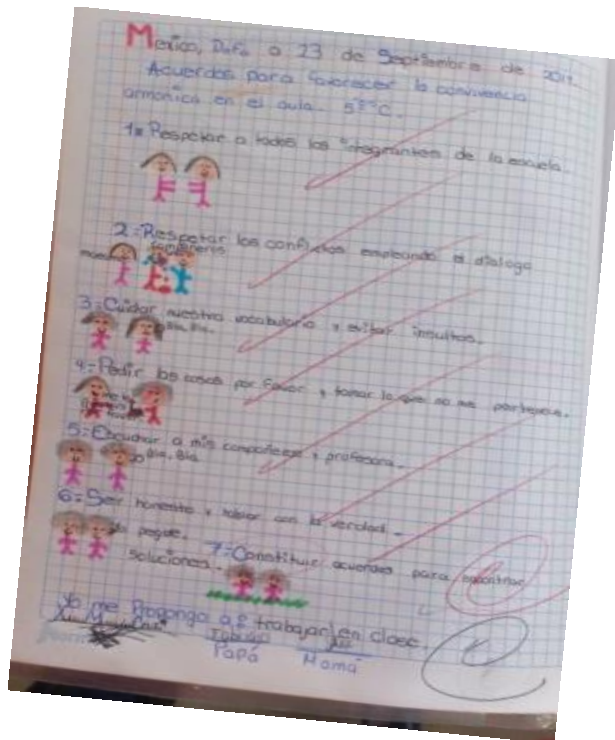 Mexico, D.F. a 23 de Septiembre de 201
Acuerdos para favorecer la convivencia
armonica en el aula. 5° C.
1= Respetar a todos los integrantes de la escuela.
2= Respetar los conflictos empleando el dialogo
3= Cuidar nuestro vocabulario y evitar insultos.
Bla, Bla.
4= Pedir las cosas por favor y tomar lo que no me pertenece.
5= Escuchar a mis compañeros y profesora.
Bla, Bla
6= Ser honesto y hablar con la verdad.
le pegue.
7= Constituir acuerdos para encontrar
soluciones.
Yo me Propongo a= trabajar en clase.
Papá Mamá